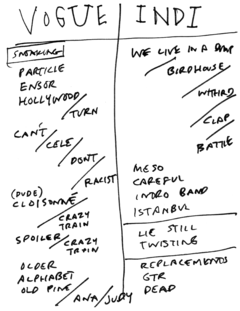 VOGUE
SNEAKING
PARTICLE
ENSOR
HOLLYWOOD
TURN
CAN'T
CELE
DONT
RACIST
(DUDE)
CLOISONNÉ
CRAZY
TRAIN
SPOILER
CRAZY
TRAIN
OLDER
ALPHABET
OLD PINE
ANA / JUDY
INDI
WE LIVE IN A DUMP
BIRDHOUSE
CLAP
BATTLE
MESO
CAREFUL
INTRO BAND
ISTANBUL
LIE STILL
TWISTING
REPLACEMENTS
GTR
DEAD